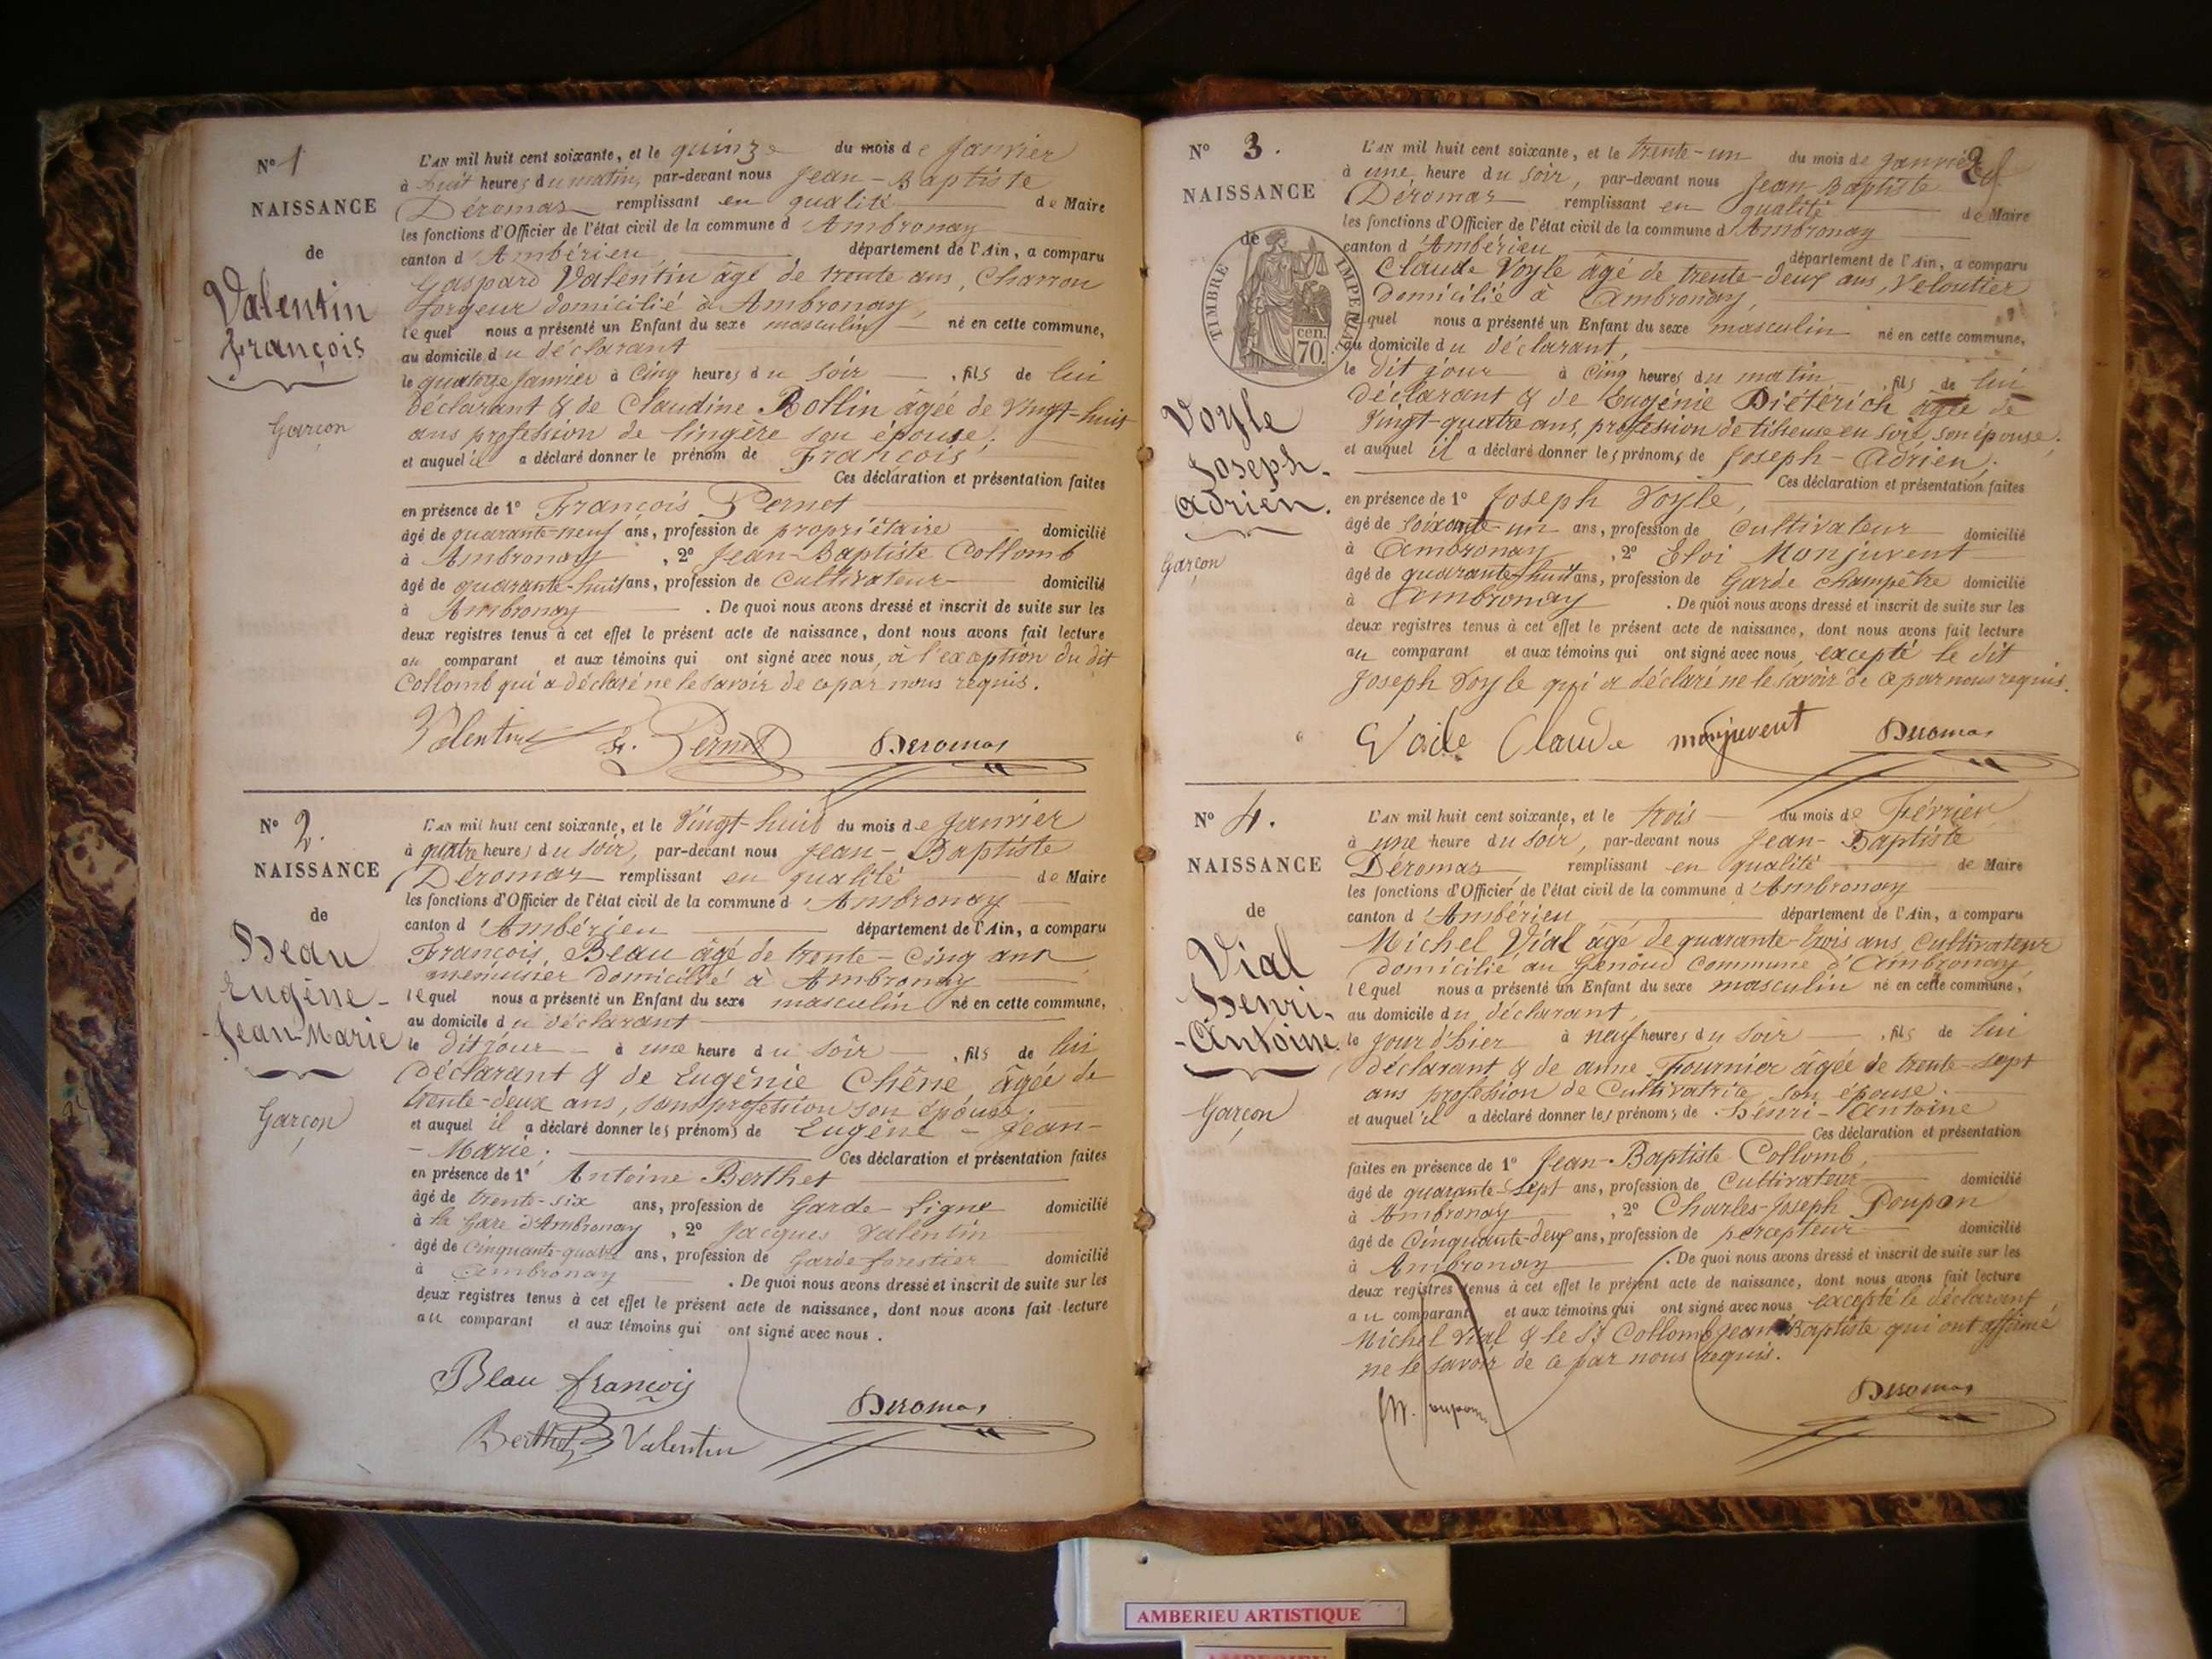 Nº 1
NAISSANCE
de
Valentin
François
Garçon
L'AN mil huit cent soixante, et le quinze du mois de Janvier
à huit heures du matin, par-devant nous Jean-Baptiste
Déromas remplissant en qualité de Maire
les fonctions d'Officier de l'état civil de la commune d'Ambronay
canton d'Ambérieu département de l'Ain, a comparu
Gaspard Valentin âgé de trente ans, Charron
forgeur domicilié à Ambronay,
lequel nous a présenté un Enfant du sexe masculin né en cette commune,
au domicile du déclarant
le quatorze Janvier à Cinq heures du soir, fils de lui
déclarant & de Claudine Rollin âgée de vingt-huit
ans profession de lingère son épouse;
et auquel il a déclaré donner le prénom de François
Ces déclaration et présentation faites
en présence de 1º François Pernet
âgé de quarante-neuf ans, profession de propriétaire domicilié
à Ambronay, 2º Jean-Baptiste Collomb
âgé de quarante-huit ans, profession de Cultivateur domicilié
à Ambronay. De quoi nous avons dressé et inscrit de suite sur les
deux registres tenus à cet effet le présent acte de naissance, dont nous avons fait lecture
au comparant et aux témoins qui ont signé avec nous, à l'exception du dit
Collomb qui a déclaré ne le savoir de ce par nous requis.
Valentin fr. Pernet Deromas
Nº 2.
NAISSANCE
de
Beau
Eugène-
-Jean-Marie
Garçon
L'AN mil huit cent soixante, et le Vingt-huit du mois de Janvier
à quatre heures du soir, par-devant nous Jean-Baptiste
Déromas remplissant en qualité de Maire
les fonctions d'Officier de l'état civil de la commune d'Ambronay
canton d'Ambérieu département de l'Ain, a comparu
François Beau âgé de trente-cinq ans
menuisier domicilié à Ambronay
lequel nous a présenté un Enfant du sexe masculin né en cette commune,
au domicile du déclarant
le dit jour à une heure du soir, fils de lui
déclarant & de Eugénie Chêne âgée de
trente-deux ans, sans profession son épouse;
et auquel il a déclaré donner les prénoms de Eugène-Jean-
-Marie; Ces déclaration et présentation faites
en présence de 1º Antoine Berthet
âgé de trente-six ans, profession de Garde-ligne domicilié
à la Gare d'Ambronay, 2º Jacques Valentin
âgé de Cinquante-quatre ans, profession de Garde forestier domicilié
à Ambronay. De quoi nous avons dressé et inscrit de suite sur les
deux registres tenus à cet effet le présent acte de naissance, dont nous avons fait lecture
au comparant et aux témoins qui ont signé avec nous.
Beau françois Deromas
Berthet Valentin
Nº 3.
NAISSANCE
de
TIMBRE IMPERIAL
70 cen.
Voyle
Joseph-
Adrien.
Garçon
L'AN mil huit cent soixante, et le trente-un du mois de Janvier
à une heure du soir, par-devant nous Jean-Baptiste
Déromas remplissant en qualité de Maire
les fonctions d'Officier de l'état civil de la commune d'Ambronay
canton d'Ambérieu département de l'Ain, a comparu
Claude Voyle âgé de trente-deux ans, Veloutier
domicilié à Ambronay,
lequel nous a présenté un Enfant du sexe masculin né en cette commune,
au domicile du déclarant,
le dit jour à Cinq heures du matin, fils de lui
déclarant & de Eugénie Dietérich âgée de
Vingt-quatre ans, profession de tisseuse en soie, son épouse;
et auquel il a déclaré donner les prénoms de Joseph-Adrien;
Ces déclaration et présentation faites
en présence de 1º Joseph Voyle,
âgé de soixante-un ans, profession de Cultivateur domicilié
à Ambronay, 2º Eloi Monjuvent
âgé de quarante-huit ans, profession de Garde champêtre domicilié
à Ambronay. De quoi nous avons dressé et inscrit de suite sur les
deux registres tenus à cet effet le présent acte de naissance, dont nous avons fait lecture
au comparant et aux témoins qui ont signé avec nous, excepté le dit
Joseph Voyle qui a déclaré ne le savoir de ce par nous requis.
Voile Claude monjuvent Deromas
Nº 4.
NAISSANCE
de
Vial
Henri-
-Antoine.
Garçon
L'AN mil huit cent soixante, et le trois du mois de Février
à une heure du soir, par-devant nous Jean-Baptiste
Déromas remplissant en qualité de Maire
les fonctions d'Officier de l'état civil de la commune d'Ambronay
canton d'Ambérieu département de l'Ain, a comparu
Michel Vial âgé de quarante-trois ans, Cultivateur
domicilié au Genoud commune d'Ambronay,
lequel nous a présenté un Enfant du sexe masculin né en cette commune,
au domicile du déclarant,
le jour d'hier à neuf heures du soir, fils de lui
déclarant & de anne Fournier âgée de trente-sept
ans profession de Cultivatrice son épouse.
et auquel il a déclaré donner les prénoms de Henri-Antoine
Ces déclaration et présentation
faites en présence de 1º Jean-Baptiste Collomb,
âgé de quarante-sept ans, profession de Cultivateur domicilié
à Ambronay, 2º Charles-Joseph Poupon
âgé de Cinquante-deux ans, profession de percepteur domicilié
à Ambronay. De quoi nous avons dressé et inscrit de suite sur les
deux registres tenus à cet effet le présent acte de naissance, dont nous avons fait lecture
au comparant et aux témoins qui ont signé avec nous excepté le déclarant
Michel Vial & le Sr Collomb Jean Baptiste qui ont affirmé
ne le savoir de ce par nous requis.
Deromas
AMBERIEU ARTISTIQUE